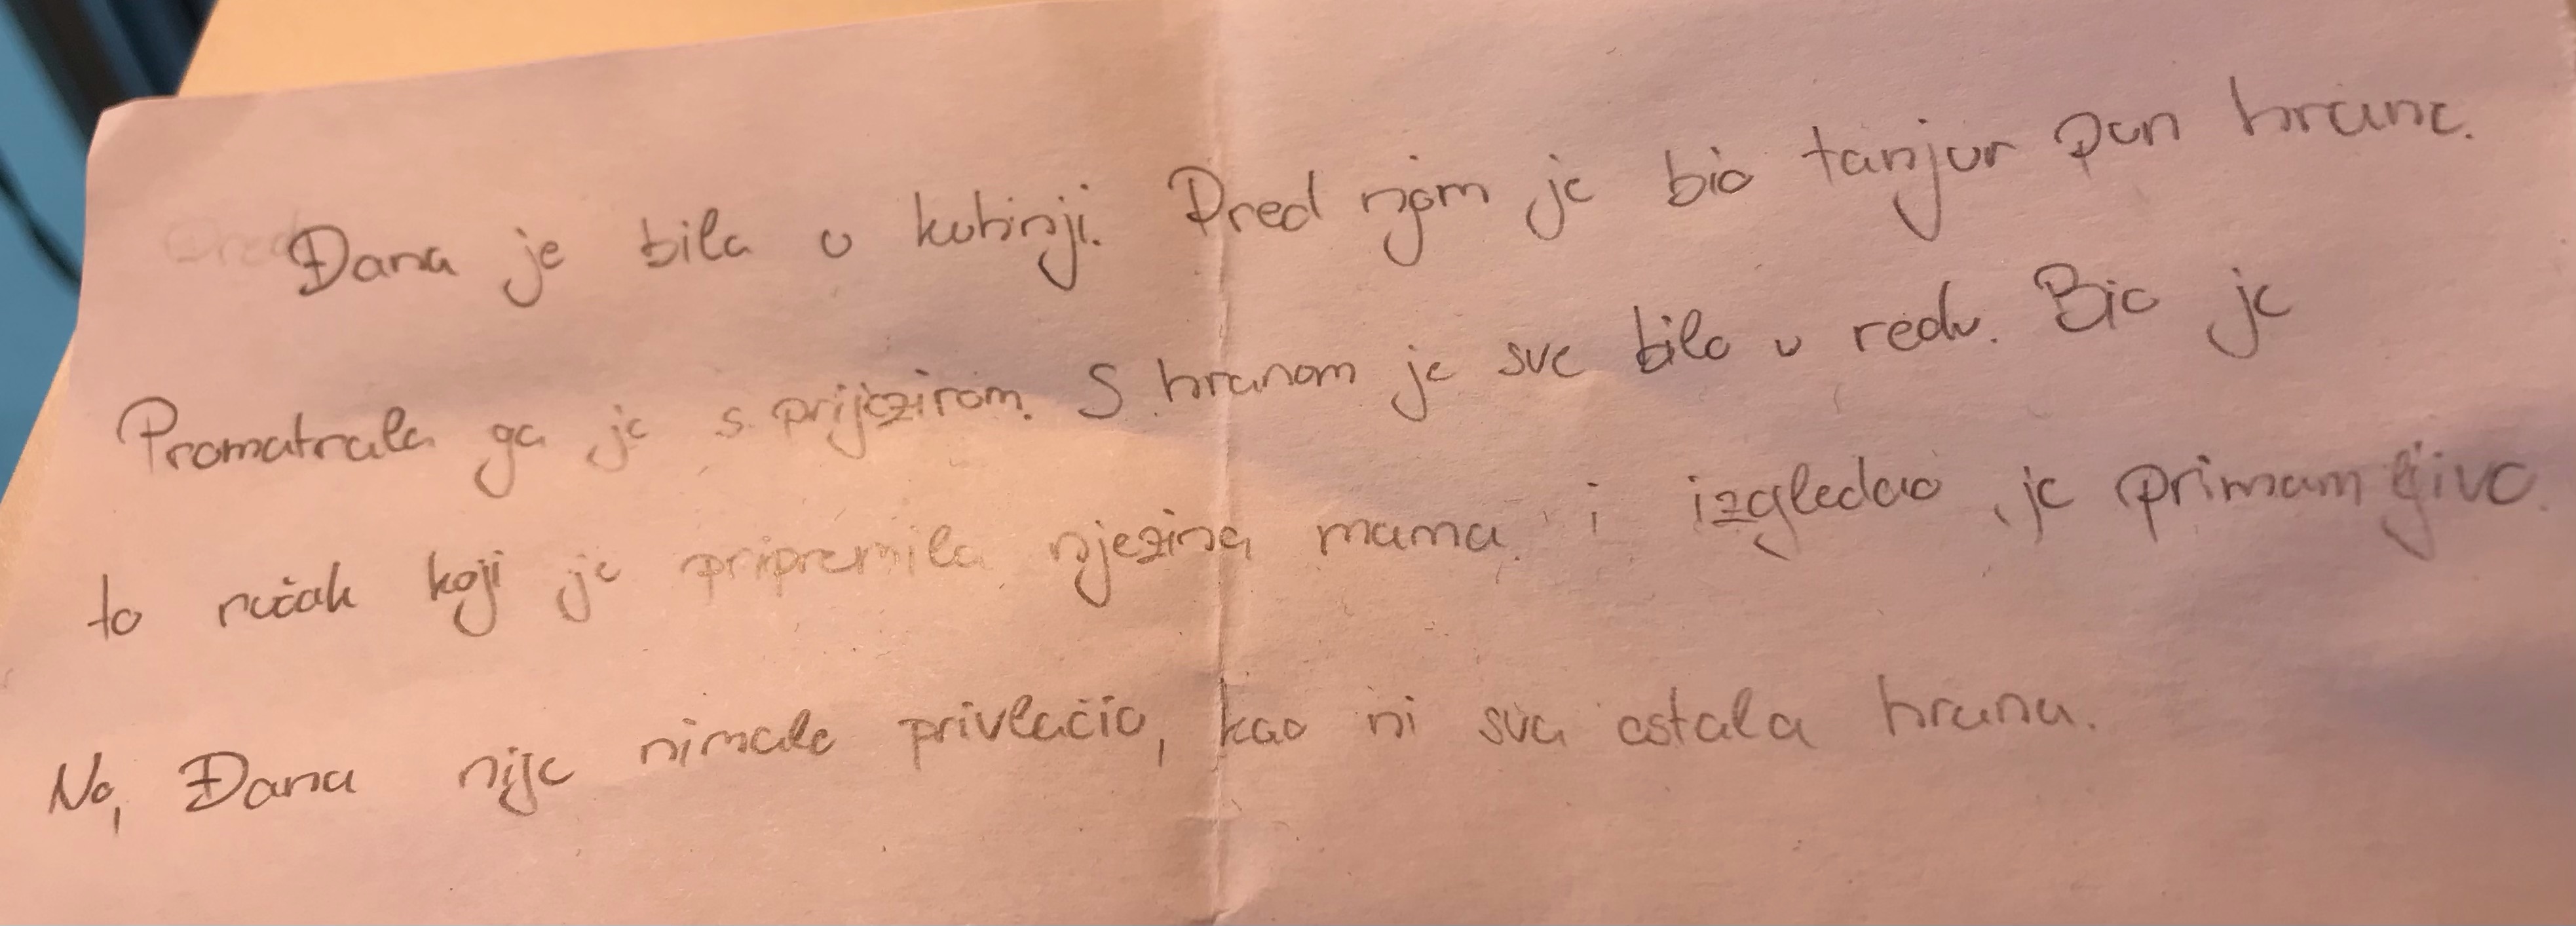 Đana je bila u kuhinji. Pred njom je bio tanjur pun hrane.
Promatrala ga je s prijezirom. S hranom je sve bilo u redu. Bio je
to ručak koji je pripremila njezina mama i izgledao je primamljivo.
No, Đana nije nimalo privlačio, kao ni sva ostala hrana.